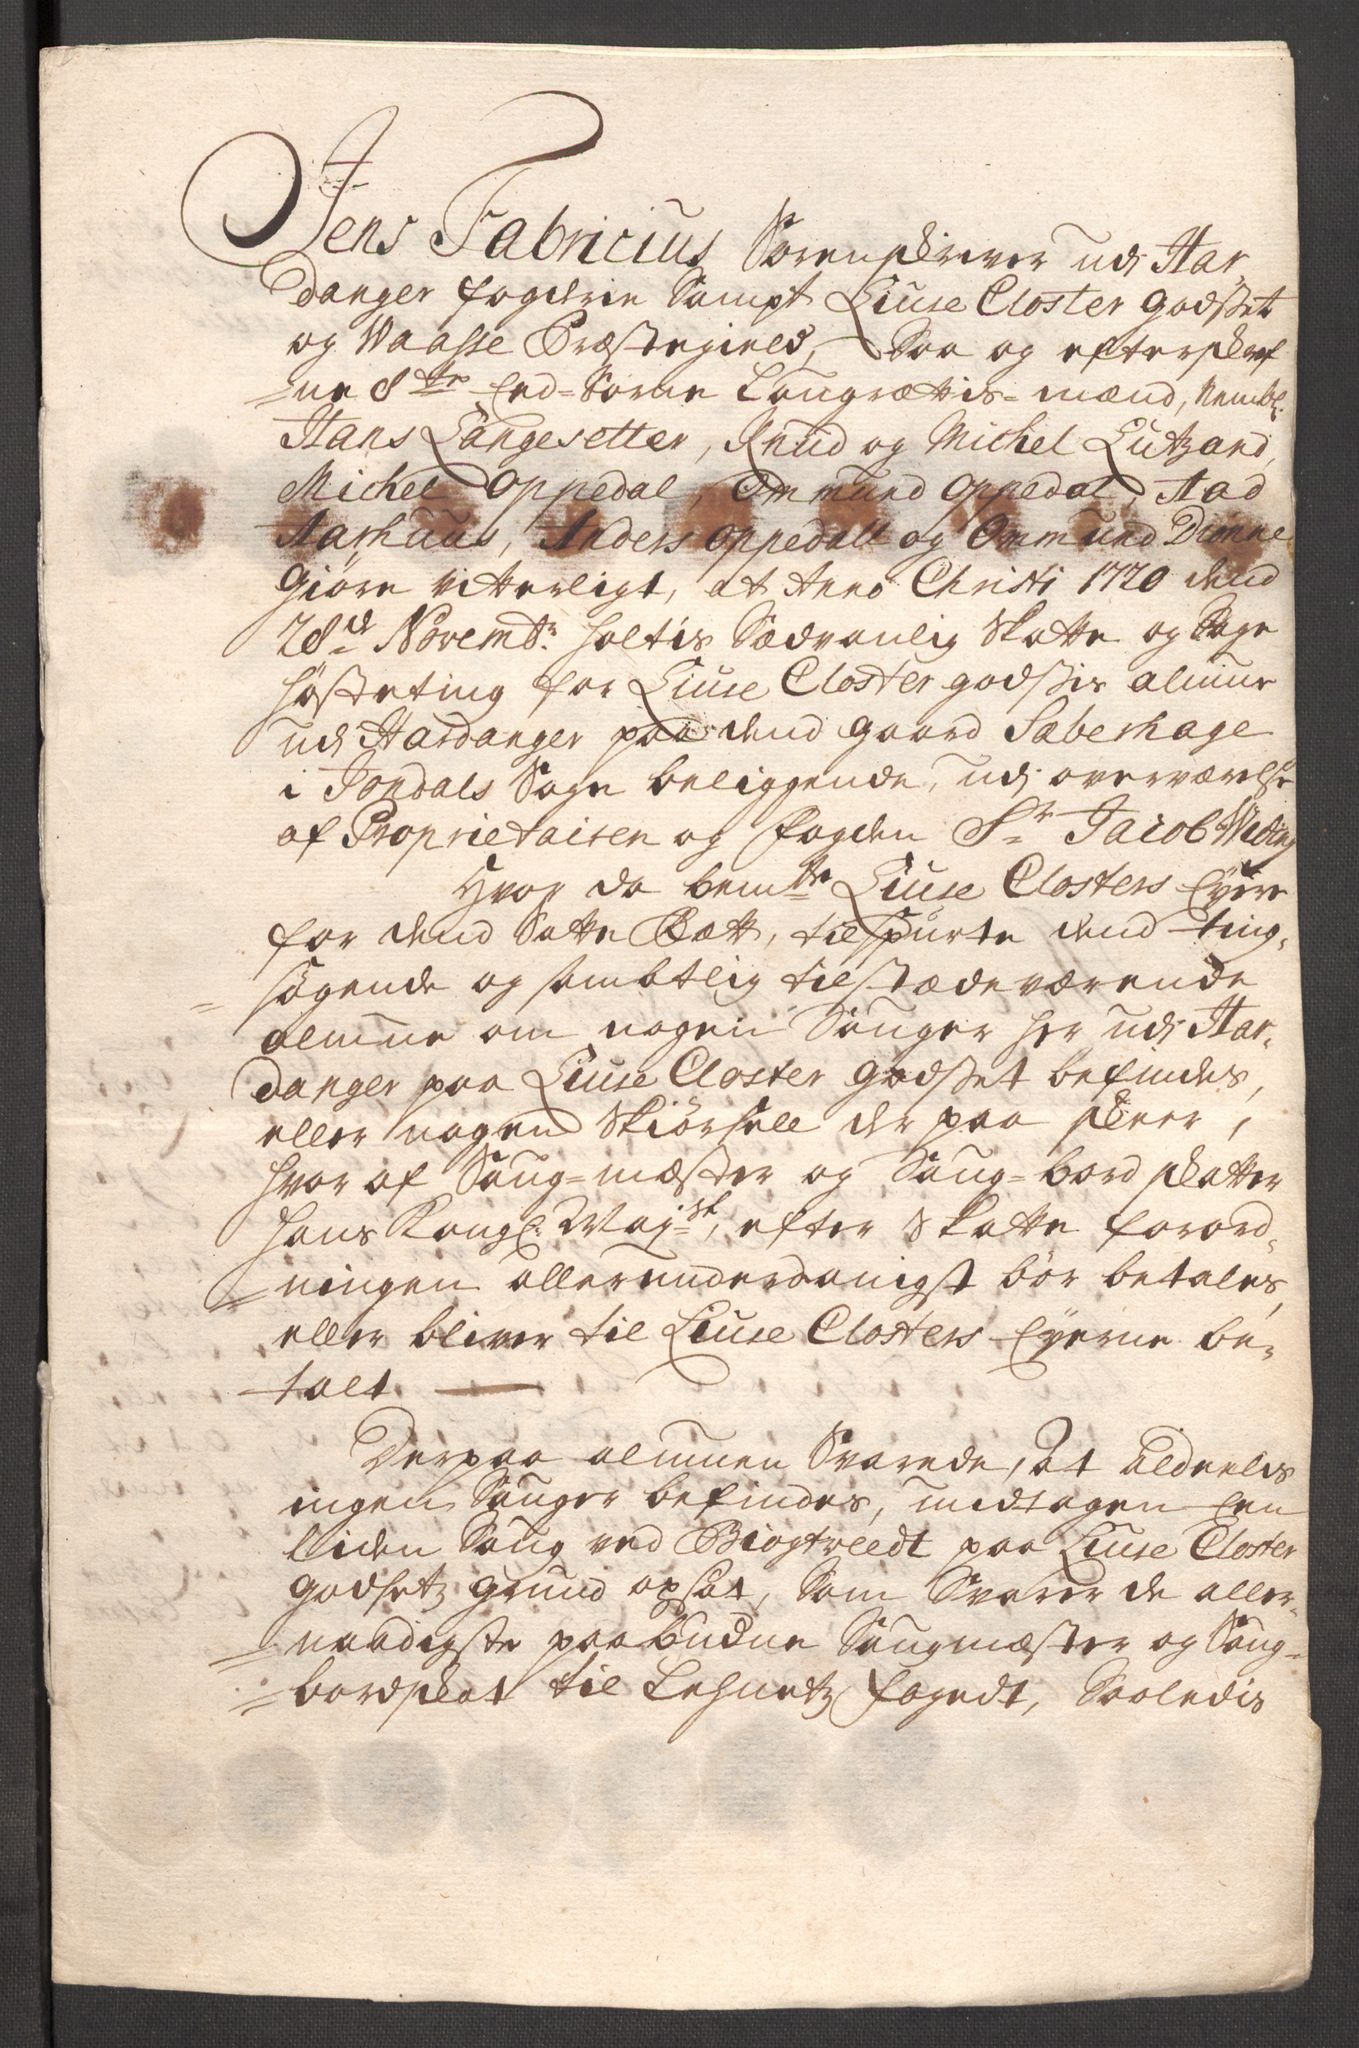 Jens Fabricius Sorenskriver udj Har„
danger fogderie Sampt Liuse Closter godsset
og Waasse Præstegield, Saa og efterskref
=ne 8te Eed=Sorne Laugrættis=mænd, Nembl:
Hans Langesetter, Knud og Michel Lutzand,
Michel Oppedal, Ommund Oppedal, Aad
Aarhuus, Anders Oppedall og Ommund Dimne
Giöre vitterligt, at Anno Christi 1710 dend
28de Novembr: holtis Sædvanlig Skatte og Sage
höste ting for Liuse Closter godssis almue
udj Hardanger paa dend gaard Saberhage
i Jondals Sogn beliggende, udj overværelse
af Proprietairen og fogden Sr Jacob Widing
Hvor da bemte Liuse Closters Eyere
for dend Satte Rætt, tilspurte dend ting„
=sögende og sambtlig tilstædeværende
almue om nogen Sauger her udj Har„
danger paa Liuse Closter godsset befindes,
eller nogen Skiörsell der paa skeer,
hvor af Saug=mæster og Saug=bord skatter
hans Kongl: Majst, efter Skatte forord„
=ningen allerunderdanigst bör betales,
eller bliver til Liuse Closters Eyerne be„
=talt
Derpaa almuen Svarede, At aldeelis
ingen Sauger befindes, undtagen Een
liden Saug ved Biogtveedt paa Liuse Closter
godsetz grund opsat, Som Svarer de aller„
=naadigste paabudne Saugmæster og Saug=
=bordskat til Lehnetz fogedt, Saaledis